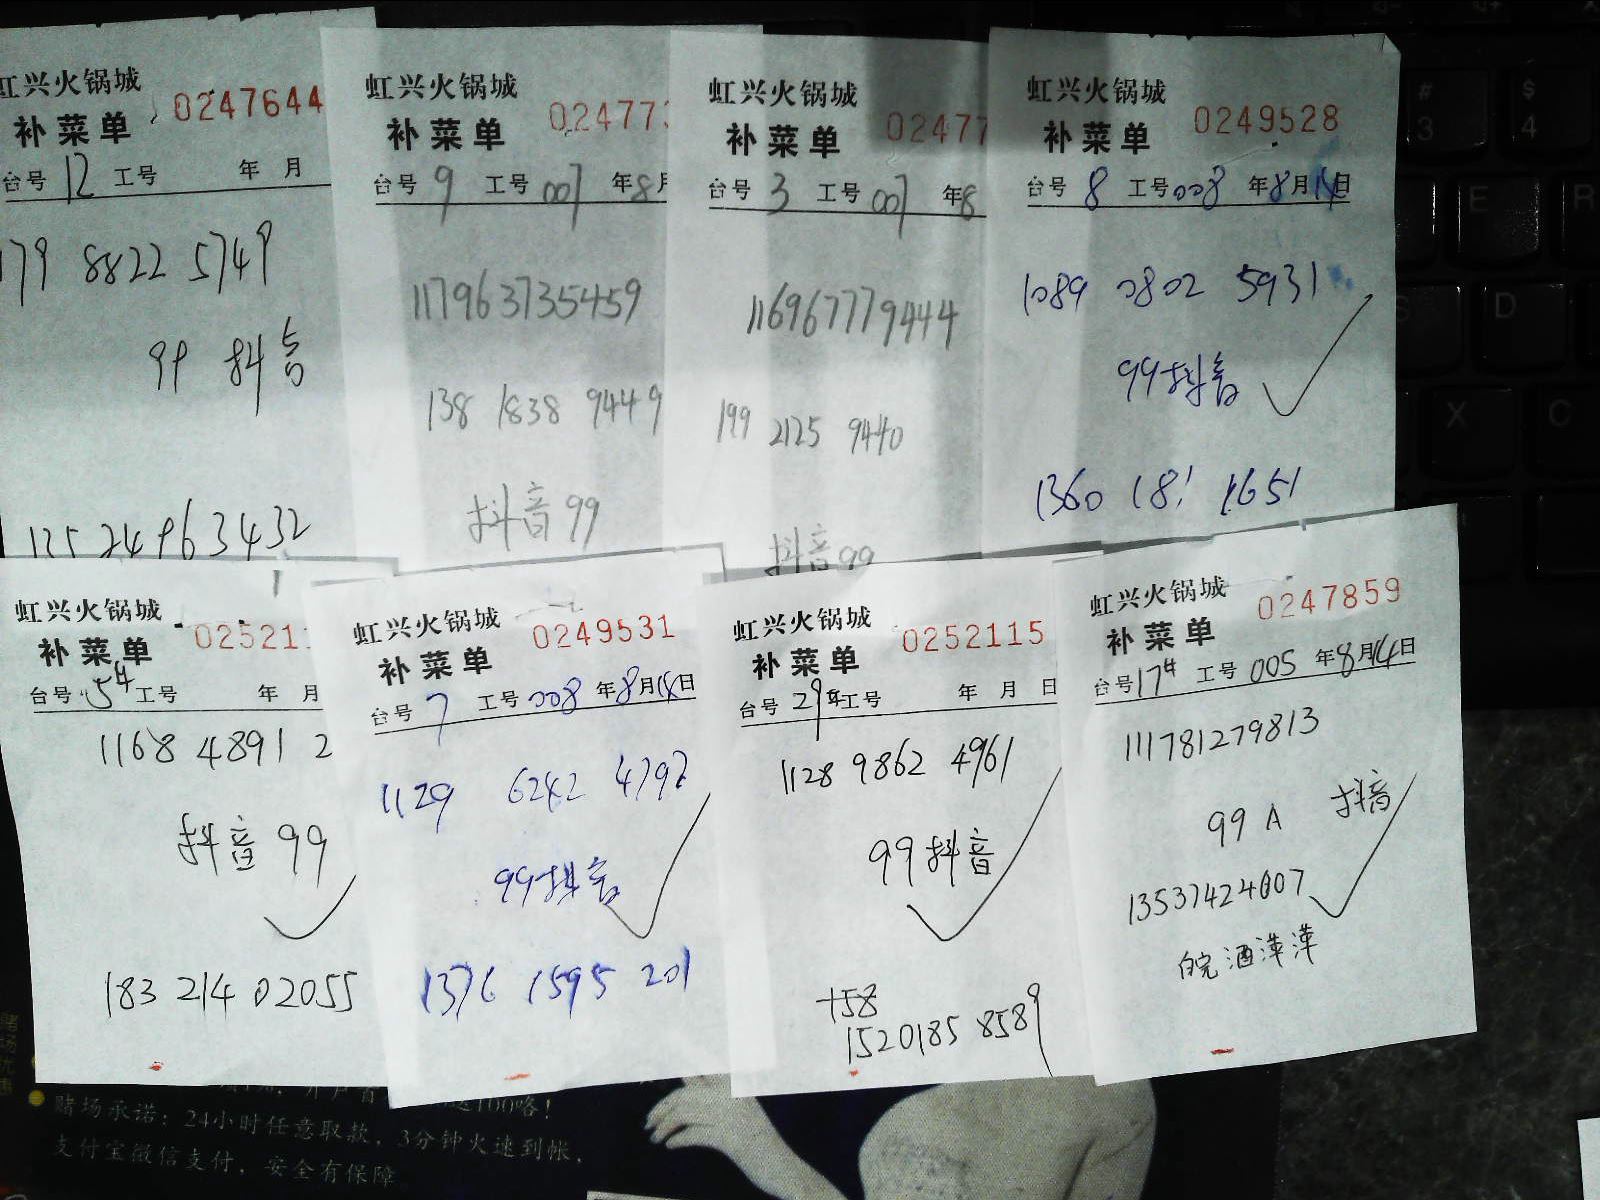 虹兴火锅城
补菜单 0247644
台号 12 工号 年 月
179 8822 5749
99 抖音
虹兴火锅城
补菜单 02477
台号 9 工号 007 年 8月
117963735459
138 1838 9449
抖音 99
虹兴火锅城
补菜单 02477
台号 3 工号 007 年 8
116967779444
199 2125 9440
抖音 99
虹兴火锅城
补菜单 0249528
台号 8 工号 008 年 8月 14日
1089 0802 5931
99抖音
1360 181 1651
虹兴火锅城
补菜单 025211
台号 5# 工号 年 月
1168 4891 2
抖音 99
183 214 02055
虹兴火锅城
补菜单 0249531
台号 7 工号 008 年 8月 14日
1129 6242 4797
99抖音
1376 1595 201
虹兴火锅城
补菜单 0252115
台号 29# 工号 年 月 日
1128 9862 4961
99抖音
158
1520185 8589
虹兴火锅城
补菜单 0247859
台号 17# 工号 005 年 8月 14日
111781279813
99 A 抖音
13537424607
皖酒萍萍
赌场承诺：24小时任意取款，3分钟火速到帐，
支付宝微信支付，安全有保障